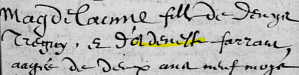 Magdelainne fille de denys
Tregny, & d'oldenette farran,
aagée de deux ans neuf mois